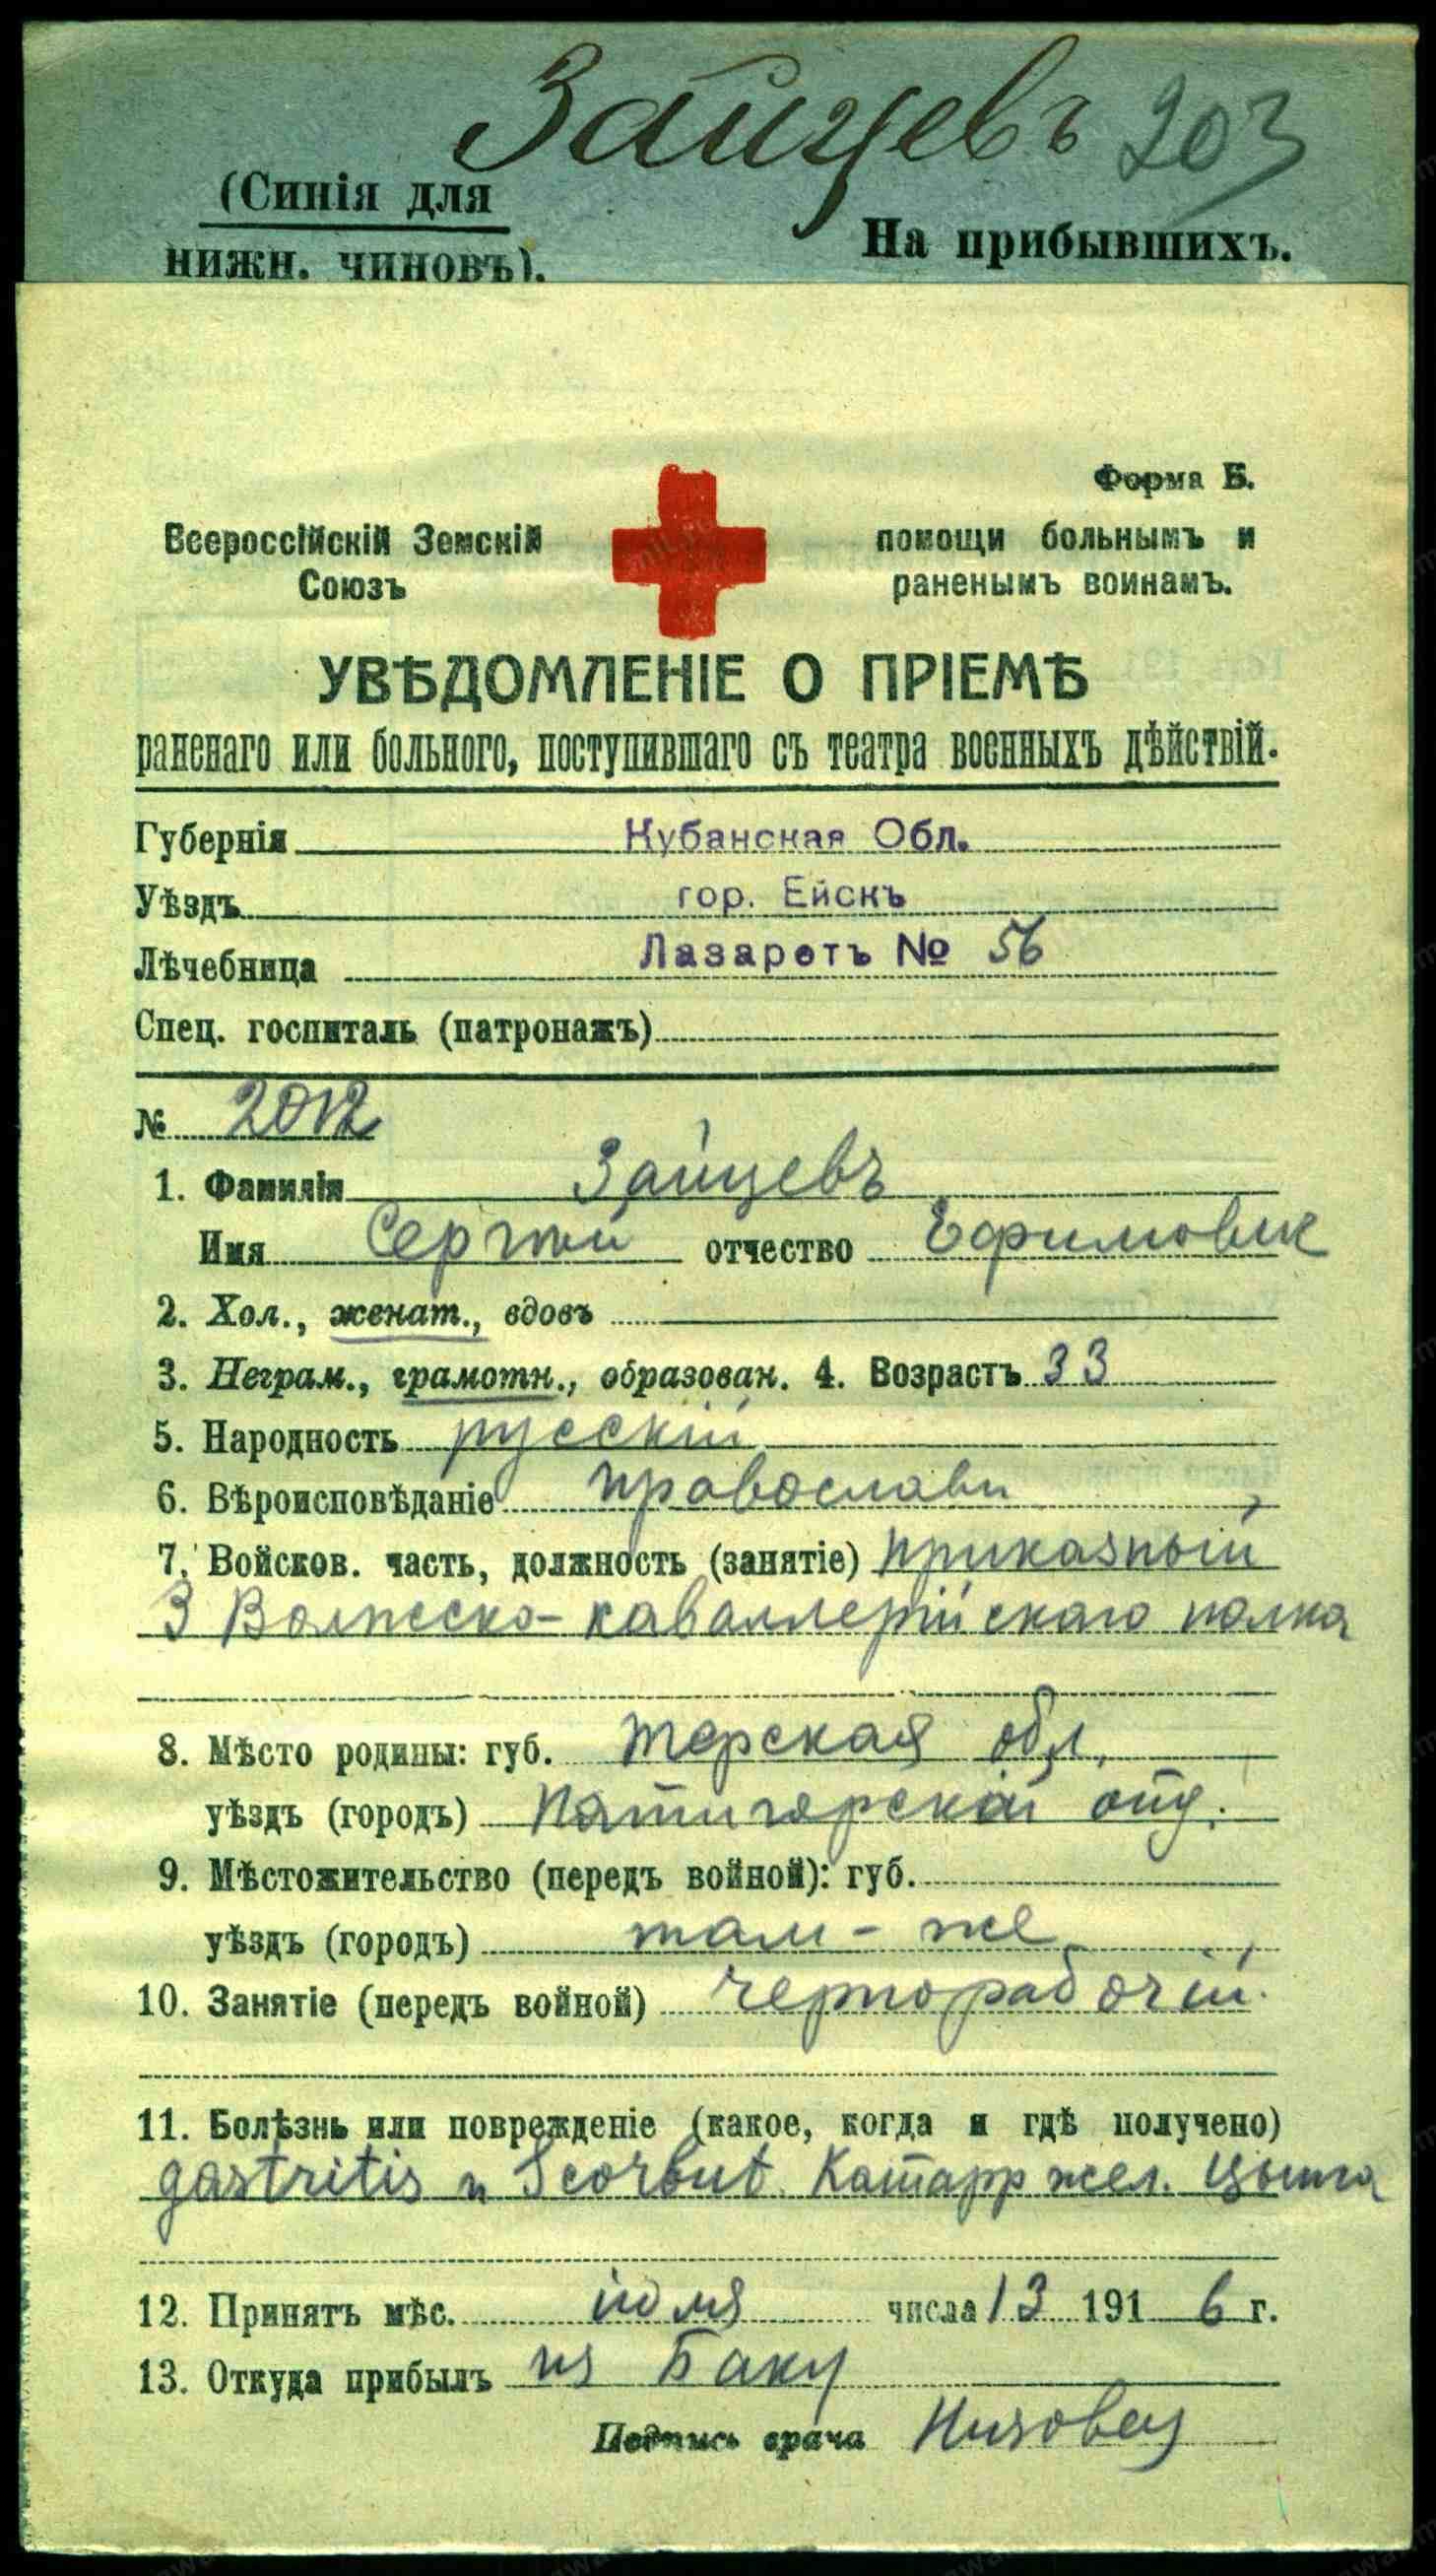 Зайцевъ 203
(Синія для
нижн. чиновъ).
На прибывшихъ.
Форма Б.
Всероссійскій Земскій
Союзъ
помощи больнымъ и
раненымъ воинамъ.
УВѢДОМЛЕНІЕ О ПРІЕМѢ
раненаго или больного, поступившаго съ театра военныхъ дѣйствій.
Губернія Кубанская Обл.
Уѣздъ гор. Ейскъ
Лѣчебница Лазаретъ № 56
Спец. госпиталь (патронажъ)
№ 2012
1. Фамилія Зайцевъ
Имя Сергѣй отчество Ефимович
2. Хол., женат., вдовъ
3. Неграм., грамотн., образован. 4. Возрастъ 33
5. Народность русскій
6. Вѣроисповѣданіе православн
7. Войсков. часть, должность (занятіе) приказный
3 Волжско-каваллерійскаго полка
8. Мѣсто родины: губ. Терская обл.
уѣздъ (городъ) Пятигорскій отд.
9. Мѣстожительство (передъ войной): губ.
уѣздъ (городъ) там-же
10. Занятіе (передъ войной) чернорабочій.
11. Болѣзнь или поврежденіе (какое, когда и гдѣ получено)
gastritis и Scorbut. Катарр жел. Цынга
12. Принятъ мѣс. іюля числа 13 1916 г.
13. Откуда прибылъ из Баку
Подпись врача